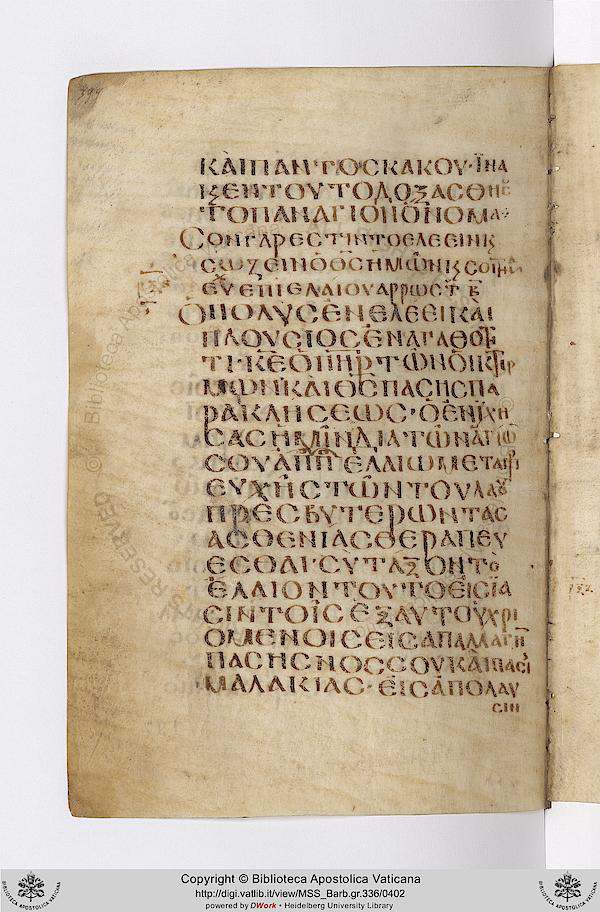 ΚΑΙΠΑΝΤΟΣΚΑΚΟΥ·ΪΝΑ
ΚΕΝΤΟΥΤΟΔΟΞΑΣΘΗ
ΤΟΠΑΝΑΓΙΟΝΟΝΟΜΑ
ΣΟΝΓΑΡΕΣΤΙΝΤΟΕΛΕΕΙΝΚ
ΣΩΖΕΙΝΟΘΣΗΜΩΝΚ
ΕΥΕΠΙΕΛΑΙΟΥΑΡΡΩΣΤ
ΟΠΟΛΥΣΕΝΕΛΕΕΙΚΑΙ
ΠΛΟΥΣΙΟΣΕΝΑΓΑΘΟΤ
ΤΙ·ΚΕΟΠΗΡΤΩΝΟΙΚΤΙΡ
ΜΩΝΚΑΙΘΣΠΑΣΗΣΠΑ
ΡΑΚΛΗΣΕΩΣ·ΟΕΝΙΧΗ
ΣΑΣΗΜΙΝΔΙΑΤΩΝΑΓΙΩ
ΣΟΥΑΠΠΕΛΑΙΩΜΕΤΑ
ΕΥΧΗΣΤΩΝΤΟΥΛΑΟΥ
ΠΡΕΣΒΥΤΕΡΩΝΤΑΣ
ΑΣΘΕΝΙΑΣΘΕΡΑΠΕΥ
ΕΣΘΑΙ·ΣΥΤΑΞΟΝΤΟ
ΕΛΑΙΟΝΤΟΥΤΟΕΙΣΙΑ
ΣΙΝΤΟΙΣΕΞΑΥΤΟΥΧΡΙ
ΟΜΕΝΟΙΣΕΙΣΑΠΑΛΛΑΓΗ
ΠΑΣΗΣΝΟΣΣΟΥΚΑΙΠΑΣΙ
ΜΑΛΑΚΙΑΣ·ΕΙΣΑΠΟΛΑΥ
ΣΙΝ
Copyright © Biblioteca Apostolica Vaticana
http://digi.vatlib.it/view/MSS_Barb.gr.336/0402
powered by DWork • Heidelberg University Library